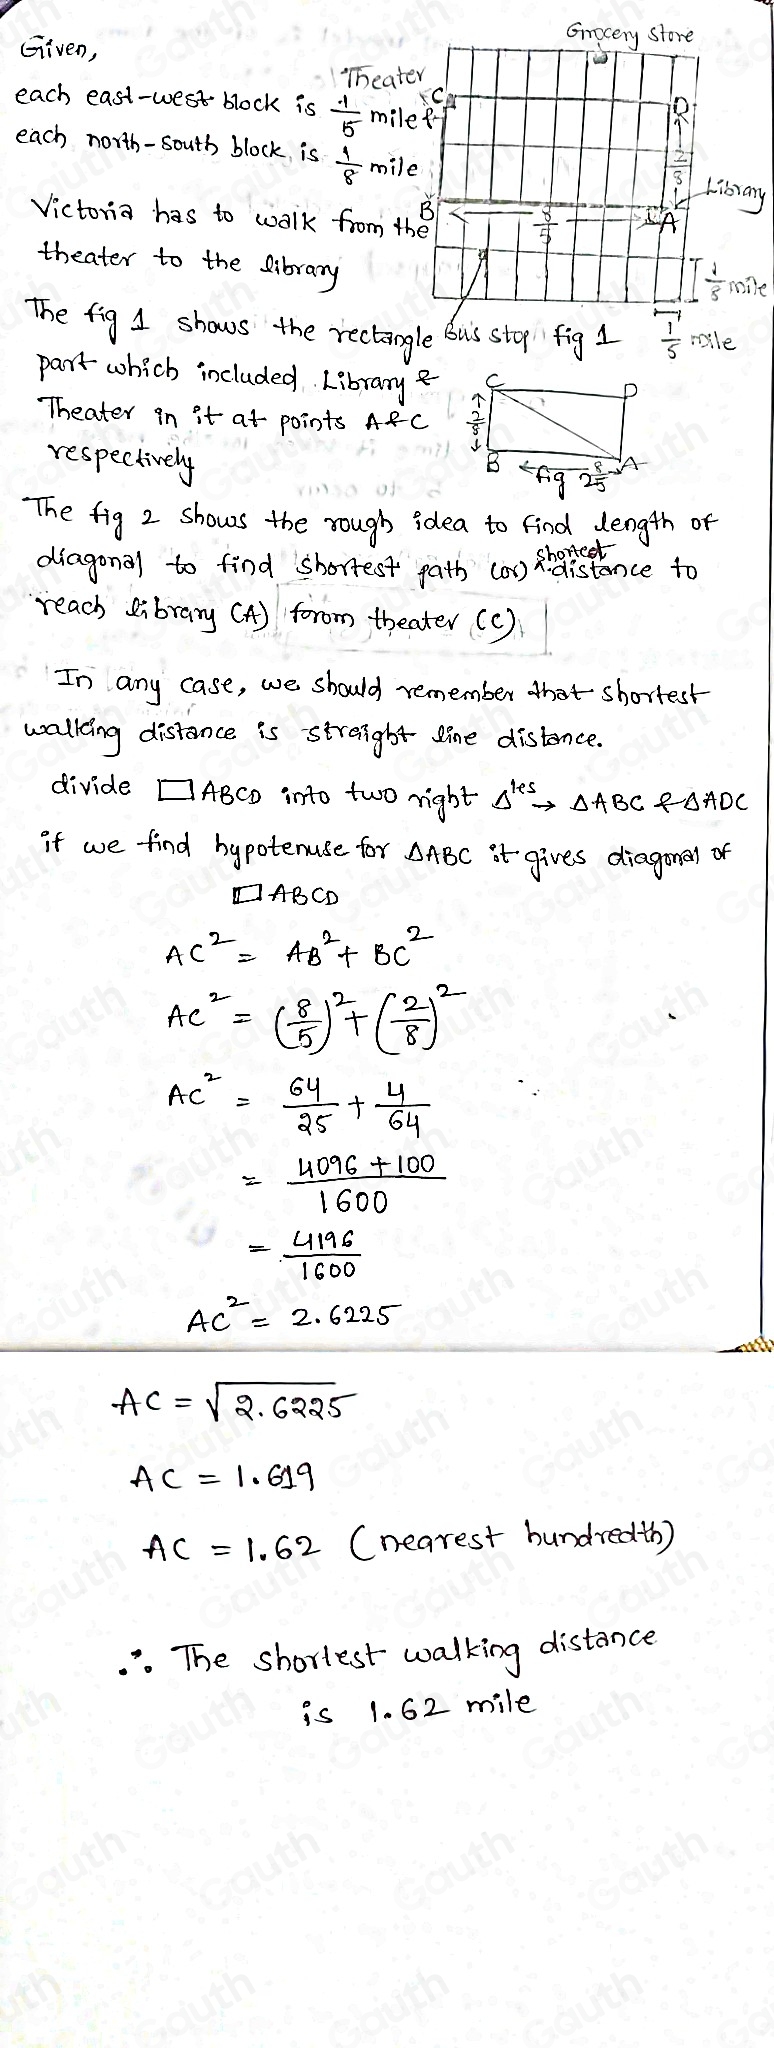 Given,
each east-west block is 1/5 mile &
each north-south block is 1/8 mile
Victoria has to walk from the
theater to the library
The fig 1 shows the rectangle
part which included Library &
Theater in it at points A & C
respectively
Grocery store
Theater
C
D
2/8
Library
B
8/5
A
1/8 mile
Bus stop
fig 1
1/5 mile
C
D
2/8
B
A
fig 2
8/5
The fig 2 shows the rough idea to find length of
diagonal to find shortest path (or) shortest distance to
reach library (A) from theater (C)
In any case, we should remember that shortest
walking distance is straight line distance.
divide ▭ ABCD into two right Δles → ΔABC & ΔADC
if we find hypotenuse for ΔABC it gives diagonal of
▭ ABCD
AC² = AB² + BC²
AC² = (8/5)² + (2/8)²
AC² = 64/25 + 4/64
= 4096 + 100 / 1600
= 4196/1600
AC² = 2.6225
AC = √2.6225
AC = 1.619
AC = 1.62 (nearest hundredth)
∴ The shortest walking distance
is 1.62 mile